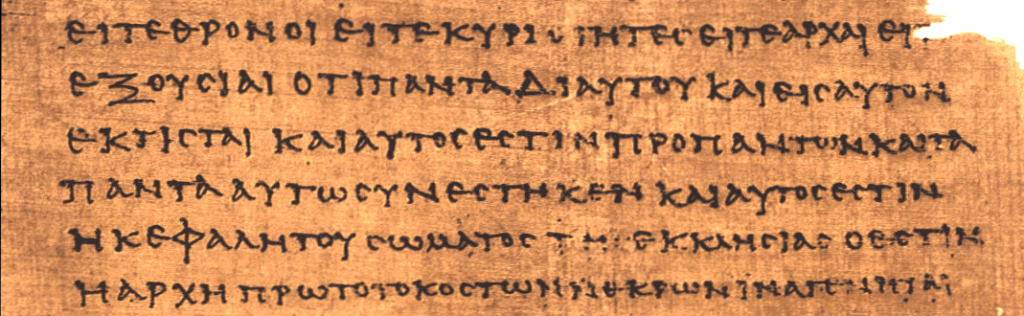 ΕΙΤΕΘΡΟΝΟΙ ΕΙΤΕΚΥΡΙΟΤΗΤΕϹ ΕΙΤΕΑΡΧΑΙ ΕΙΤ
ΕΞΟΥϹΙΑΙ ΟΤΙΠΑΝΤΑΔΙΑΥΤΟΥ ΚΑΙΕΙϹΑΥΤΟΝ
ΕΚΤΙϹΤΑΙ ΚΑΙΑΥΤΟϹΕϹΤΙΝΠΡΟΠΑΝΤΩΝΚΑΙΤΑ
ΠΑΝΤΑΑΥΤΩϹΥΝΕϹΤΗΚΕΝ ΚΑΙΑΥΤΟϹΕϹΤΙΝ
ΗΚΕΦΑΛΗΤΟΥ ϹΩΜΑΤΟϹ ΤΗϹ ΕΚΚΛΗϹΙΑϹ ΟΕϹΤΙΝ
ΗΑΡΧΗ ΠΡΩΤΟΤΟΚΟϹΤΩΝΝΕΚΡΩΝΙΝΑΓΕΝΗΤΑΙ